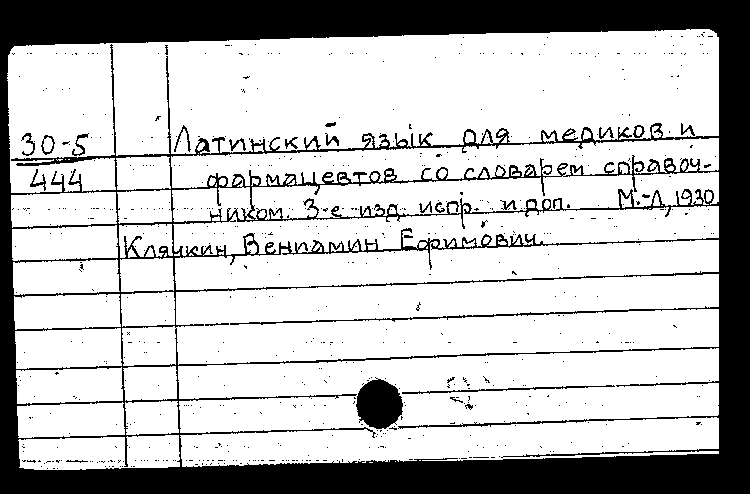 30-5
444
Латинский язык для медиков и
фармацевтов со словарем справоч-
ником. 3-е изд. испр. и доп. М.-Л, 1930.
Клячкин, Вениамин Ефимович.